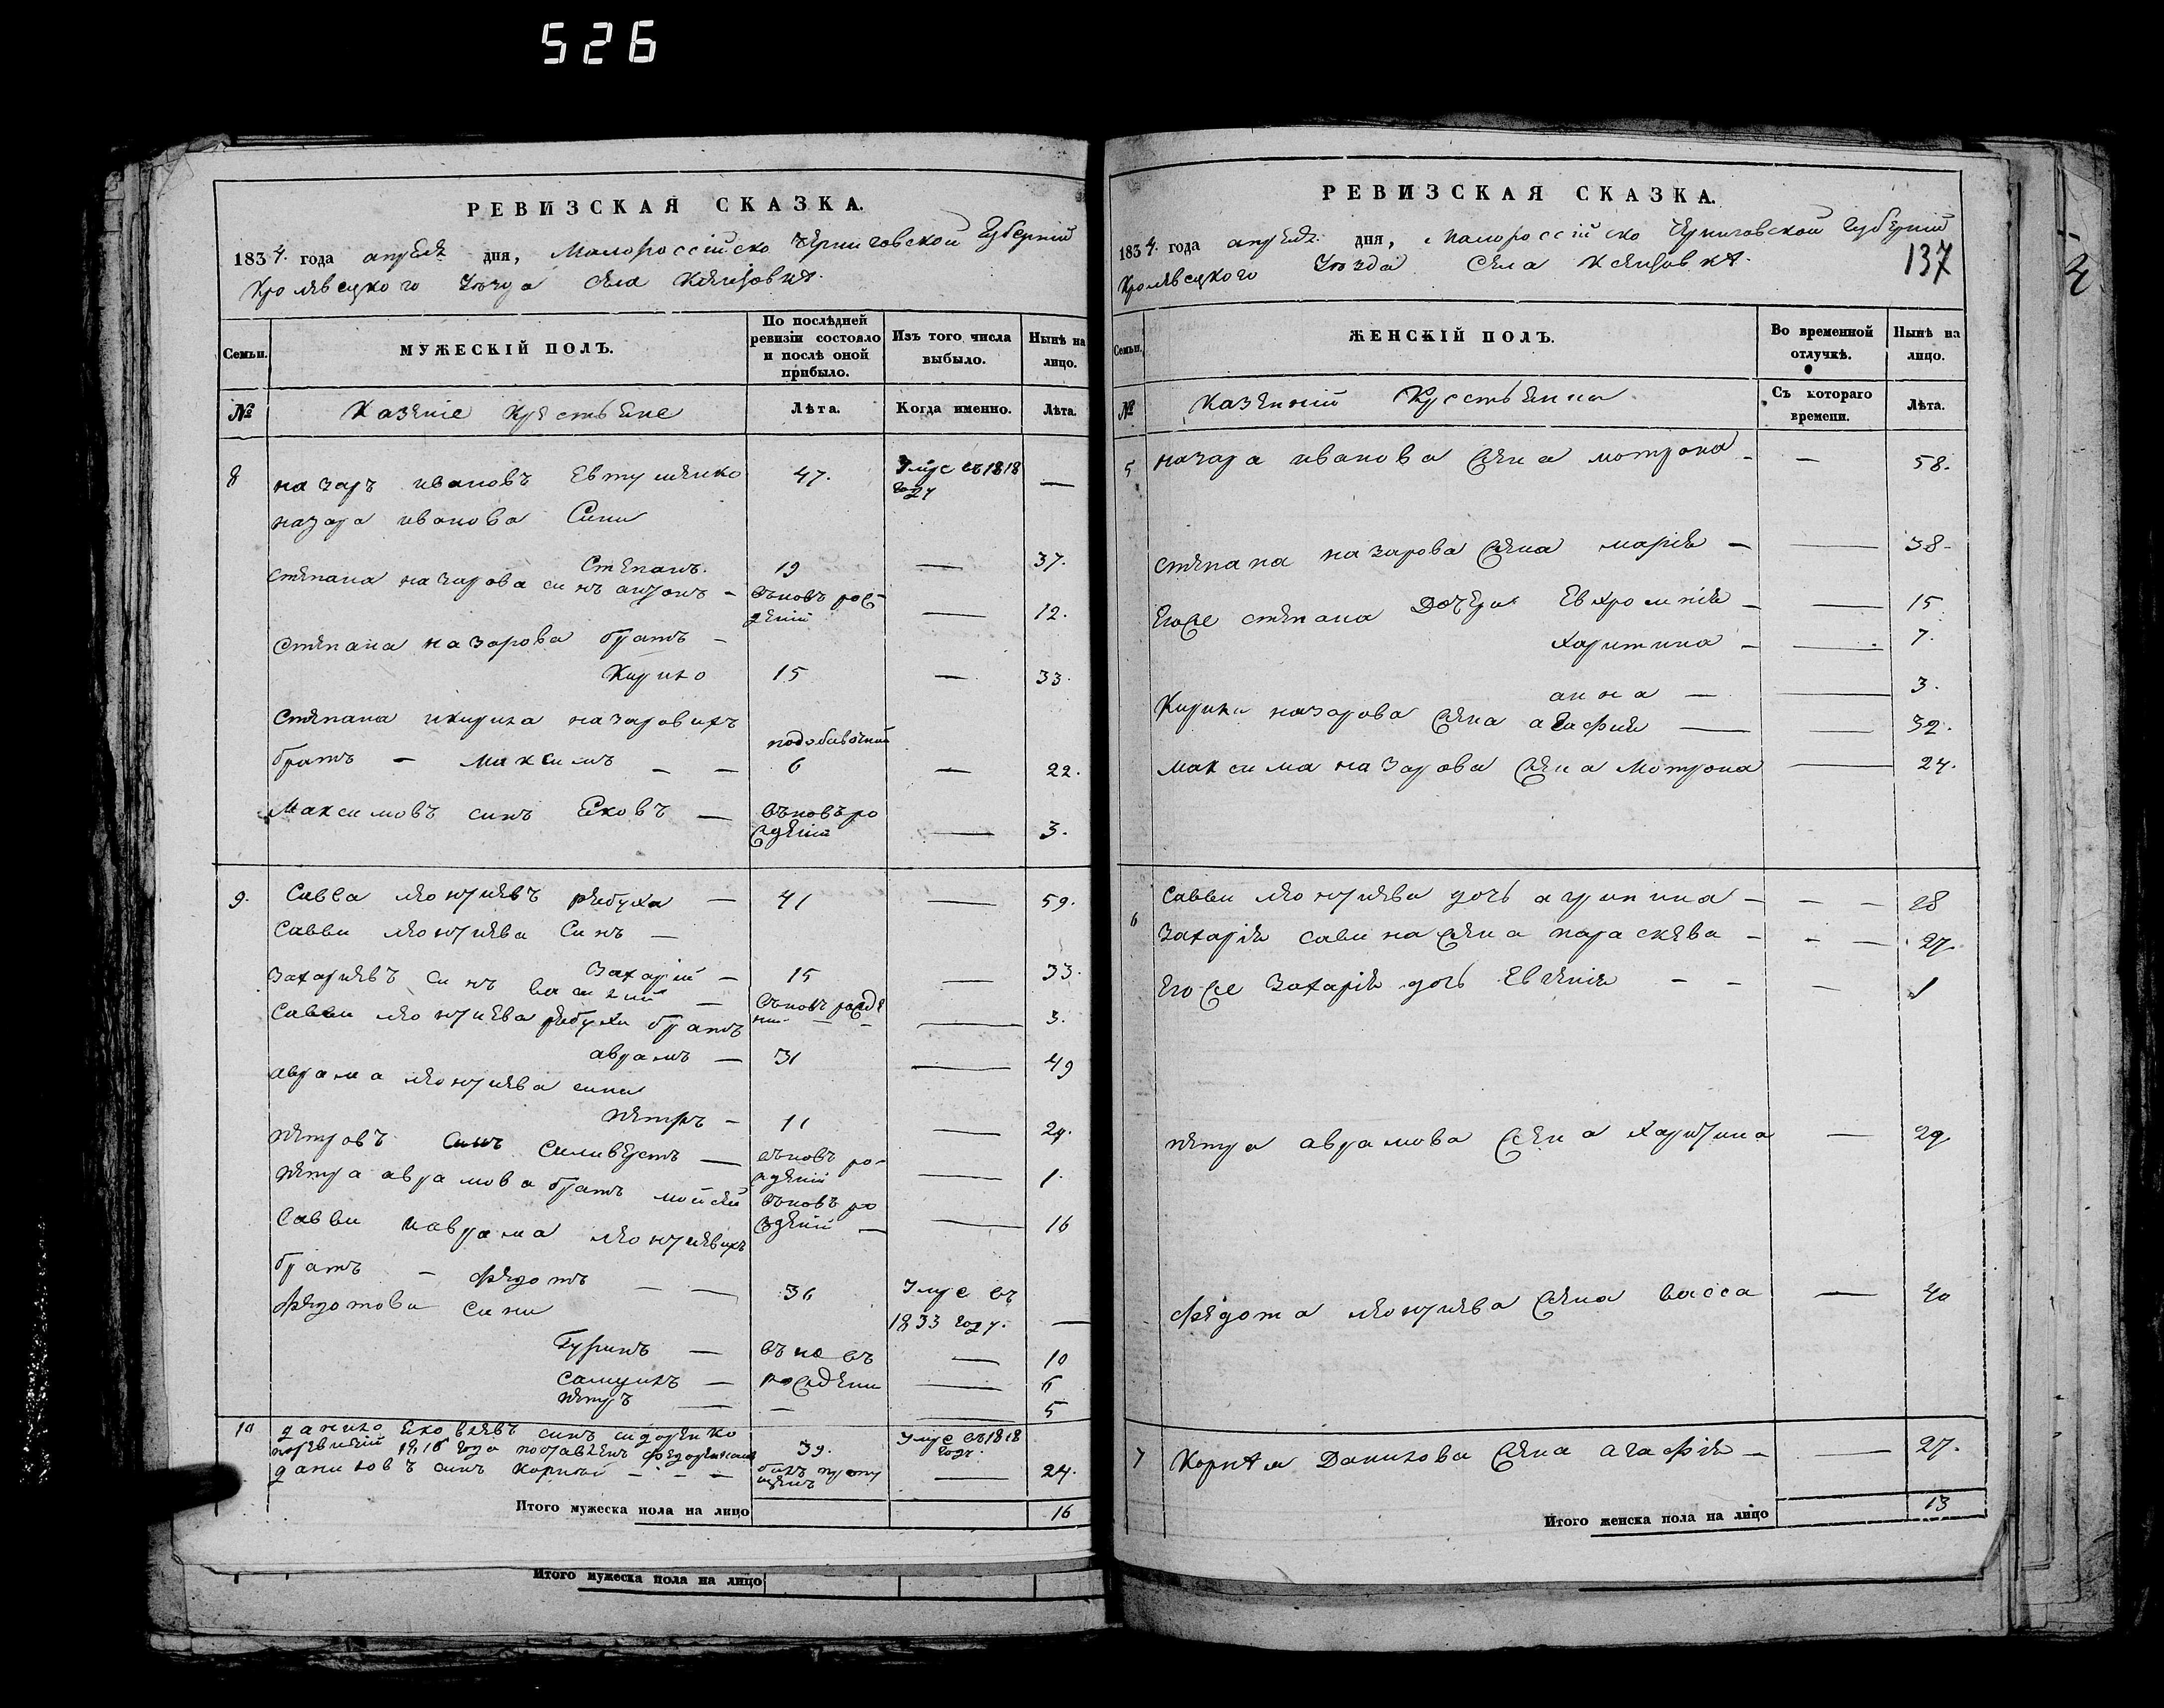 526
РЕВИЗСКАЯ СКАЗКА.
1834. года апреля дня, Малороссійско Черниговской Губерній
Кролевецкого Уезда Села
Семьи.
МУЖЕСКІЙ ПОЛЪ.
По послѣдней ревизіи состояло и послѣ оной прибыло.
Изъ того числа выбыло.
Нынѣ на лицо.
№
Казеніе Крестьяне
Лѣта.
Когда именно.
Лѣта.
8 назаръ ивановъ Евтушенко 47. Умре въ 1818 году —
назара иванова Сини
Степанъ. 19 — 37.
степана назарова синъ — въновь рож дений — 12.
Степана назарова братъ —
Кирило 15 — 33.
Степана икирила назаровихъ
братъ — максимъ — — 6 — 22.
Максимовъ синъ Яковъ — въновъ ро жденій — 3.
9. Савва леонтиевъ рябуха — 41 — 59.
Савви леонтиева Синъ —
Захарій — 15 — 33.
Захариевъ синъ василий — въновъ рожде ний — 3.
Савви леонтиева рябухи братъ
аврамъ — 31 — 49
аврама леонтиева сини
петръ — 11 — 29.
петровъ синъ Силиверстъ — въновъ ро-жденій — 1.
петра аврамова братъ мойсей въновъ ро жденій — 16
Савви иаврама леонтиевихъ
братъ — федотъ — — 36 Умре въ 1833 году. —
федотови сини
Гуринъ — въновъ — 10
самуилъ — рождени — 6
петръ — — — 5
10 данило яковлевъ синъ сидоренко 39. Умре въ 1818 году.
1816 года
даниловъ синъ корней — — — — 24.
Итого мужеска пола на лицо 16
Итого мужеска пола на лицо
РЕВИЗСКАЯ СКАЗКА.
1834. года апреля дня, малороссійско Черниговской Губерній
Кролевецкого Уезда Села
137
Семьи.
ЖЕНСКІЙ ПОЛЪ.
Во временной отлучкѣ.
Нынѣ на лицо.
№
Казенній Крестьянки
Съ котораго времени.
Лѣта.
5 назара иванова жена мотрона — — 58.
степана назарова жена марія — — 38.
Егоже степана Дочери Евхромія — — 15
харитина — — 7.
анна — — 3.
Кирили назарова жена агафия — — 32.
максима назарова жена мотрона — 24.
6 савви леонтиева дочь агрипина — — — 28
Захарія савина жена параскева — — — 27.
Егоже Захарія дочь Евгенія — — — 1
петра аврамова жена харитина — 29
федота леонтиева жена васса — 40
7 Корнея Данилова жена агафія — — 27.
Итого женска пола на лицо 13